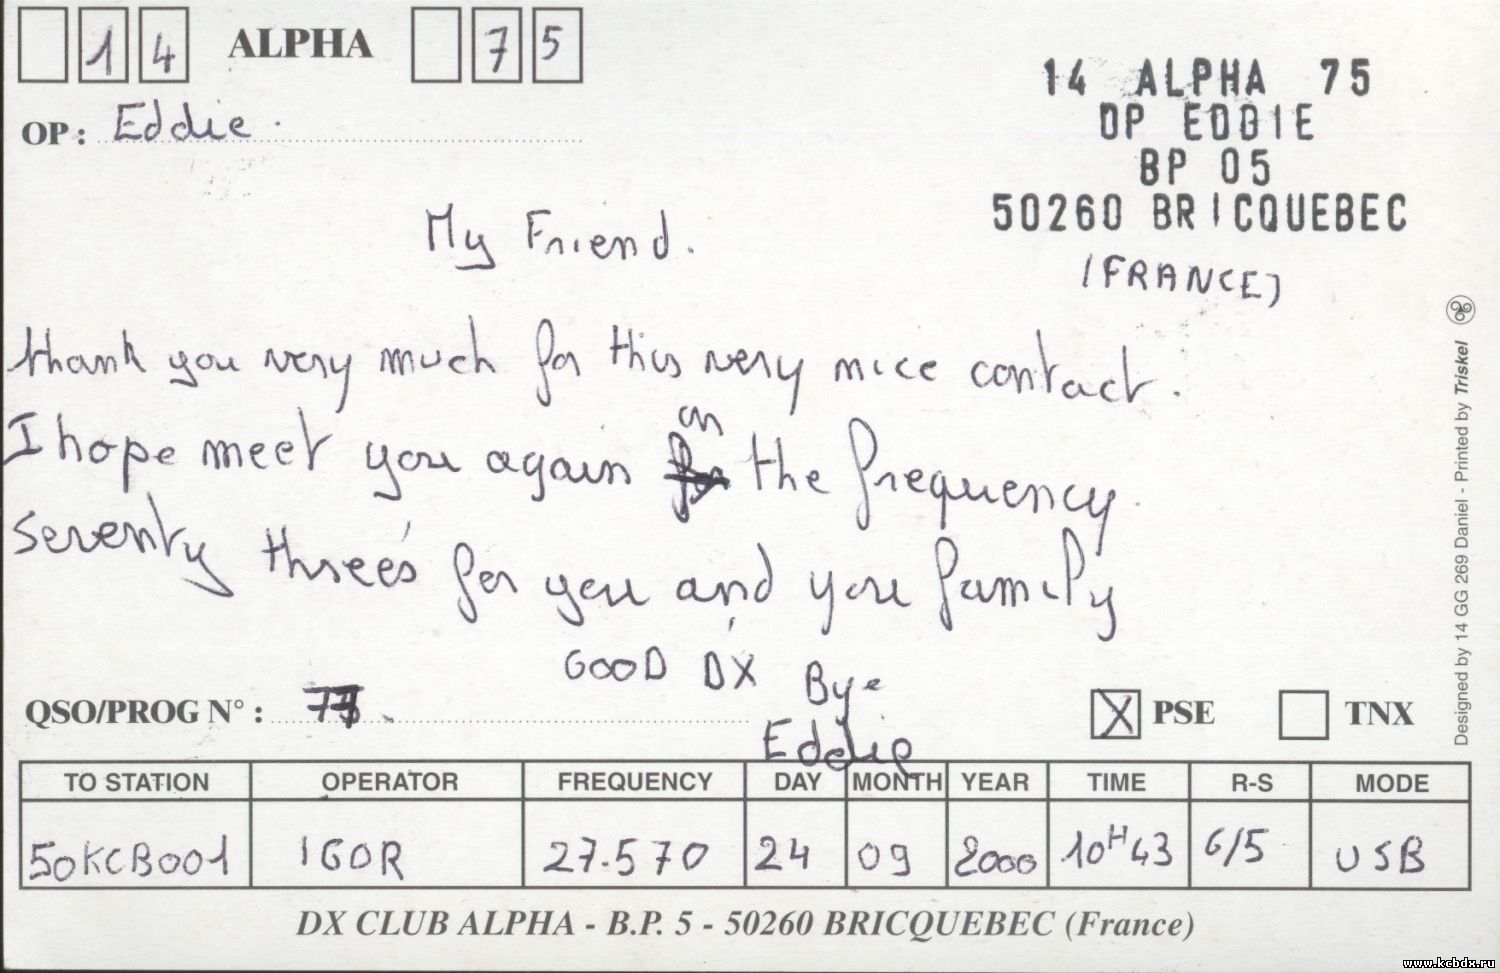 14 ALPHA 75
OP : Eddie.
14 ALPHA 75
OP EDDIE
BP 05
50260 BRICQUEBEC
(FRANCE)
My Friend.
thank you very much for this very nice contact.
I hope meet you again on the frequency.
seventy three's for you and you family
GOOD DX Bye
Eddie
QSO/PROG N° :
X PSE TNX
TO STATION OPERATOR FREQUENCY DAY MONTH YEAR TIME R-S MODE
50KCB001 IGOR 27.570 24 09 2000 10H43 6/5 USB
DX CLUB ALPHA - B.P. 5 - 50260 BRICQUEBEC (France)
Designed by 14 GG 269 Daniel - Printed by Triskel
www.kcbdx.ru